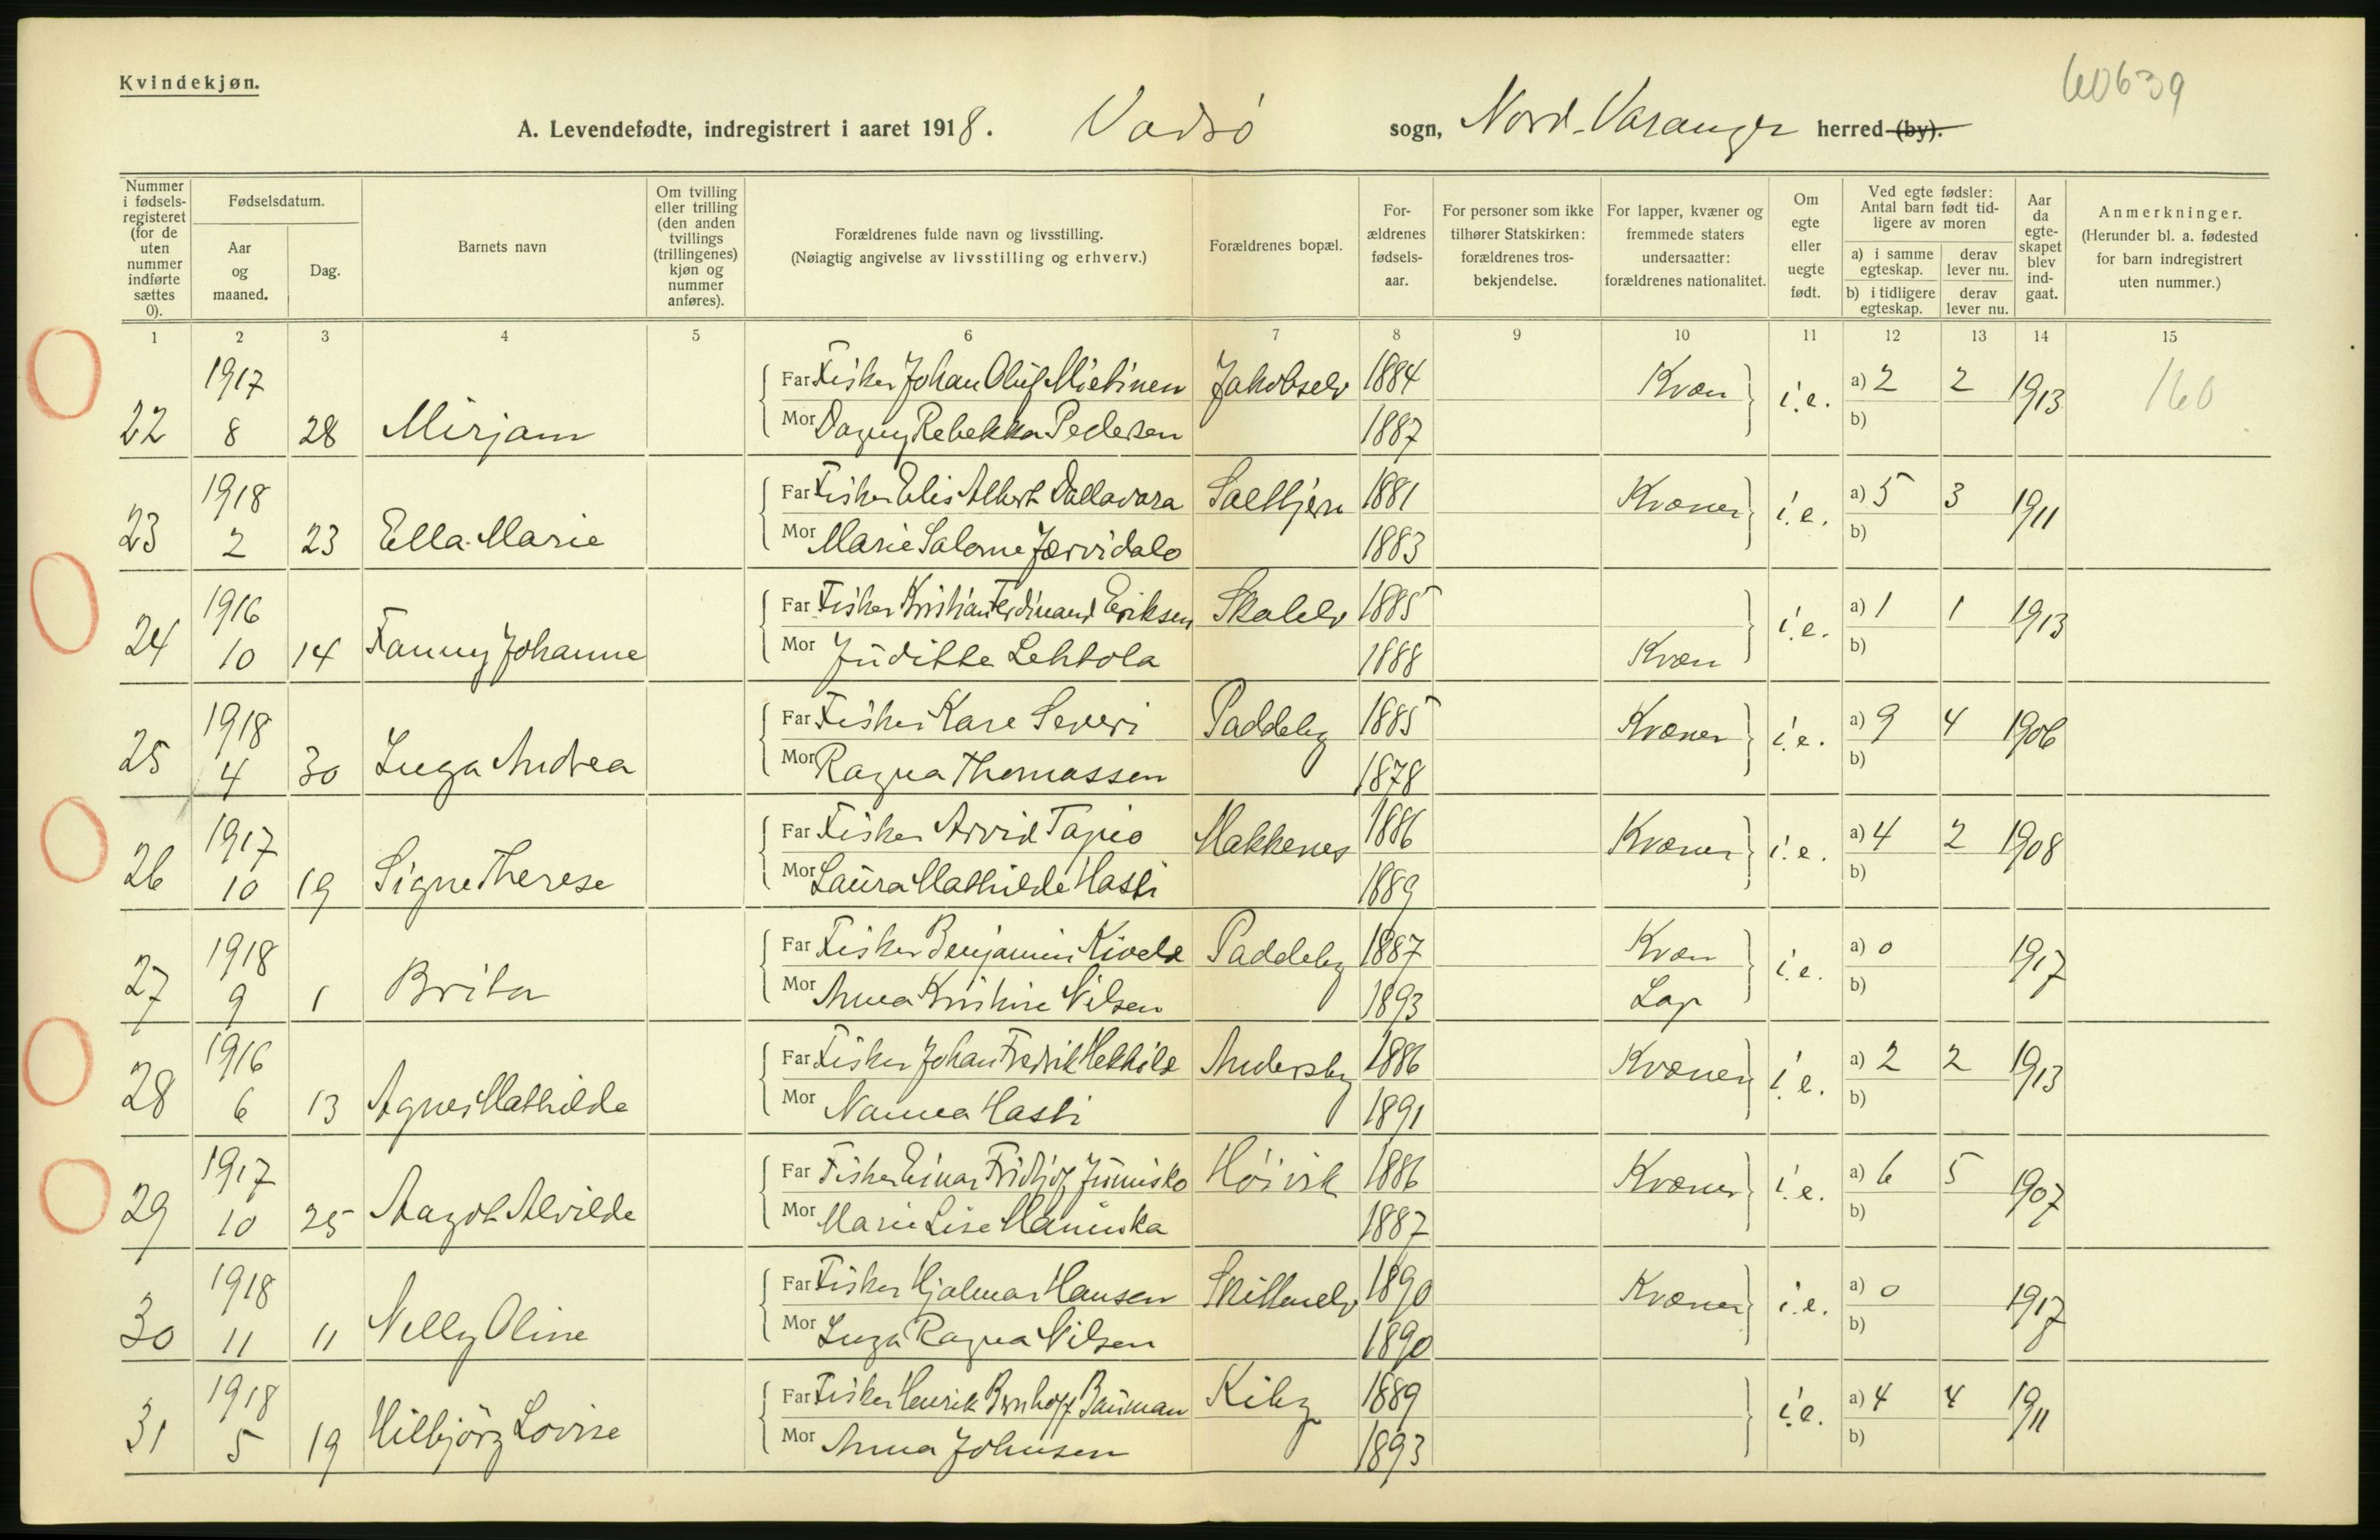 Kvindekjøn.
60639
A. Levendefødte, indregistrert i aaret 1918. Vadsö sogn, Nord-Varanger herred (by).
Nummer i fødselsregisteret (for de uten nummer indførte sættes 0).
Fødselsdatum.
Aar og maaned.
Dag.
Barnets navn
Om tvilling eller trilling (den anden tvillings (trillingenes) kjøn og nummer anføres).
Forældrenes fulde navn og livsstilling.
(Nøiagtig angivelse av livsstilling og erhverv.)
Forældrenes bopæl.
Forældrenes fødselsaar.
For personer som ikke tilhører Statskirken: forældrenes trosbekjendelse.
For lapper, kvæner og fremmede staters undersaatter: forældrenes nationalitet.
Om egte eller uegte født.
Ved egte fødsler: Antal barn født tidligere av moren
a) i samme egteskap. derav lever nu.
b) i tidligere egteskap. derav lever nu.
Aar da egteskapet blev indgaat.
Anmerkninger.
(Herunder bl. a. fødested for barn indregistrert uten nummer.)
1 2 3 4 5 6 7 8 9 10 11 12 13 14 15
1917 Far Fisker Johan Oluf Mietinen Jakobselv 1884 Kvæn i.e. a) 2 2 1913 160
22 8 28 Mirjam Mor Dagny Rebekka Pedersen 1887 b)
1918 Far Fisker Elis Albert Vallavara Saltbjern 1881 Kvæner i.e. a) 5 3 1911
23 2 23 Ella Marie Mor Marie Salome Jærvidalo 1883 b)
1916 Far Fisker Kristian Ferdinand Eriksen Skalelv 1885 i.e. a) 1 1 1913
24 10 14 Fanny Johanne Mor Juditte Lehtola 1888 Kvæn b)
1918 Far Fisker Kare Severi Paddeby 1885 Kvæner i.e. a) 9 4 1906
25 4 30 Inga Andrea Mor Ragna Thomassen 1878 b)
1917 Far Fisker Arvid Tapio Makkenes 1886 Kvæner i.e. a) 4 2 1908
26 10 19 Signe Therese Mor Laura Mathilde Hasti 1889 b)
1918 Far Fisker Benjamin Kivelæ Paddeby 1887 Kvæn i.e. a) 0 1917
27 9 1 Brita Mor Anna Kristine Nilsen 1893 Lap b)
1916 Far Fisker Johan Fredrik Heikkilæ Andersby 1886 Kvæner i.e. a) 2 2 1913
28 6 13 Agnes Mathilde Mor Nanna Hasti 1891 b)
1917 Far Fisker Einar Fridtjof Junnisko Höivik 1886 Kvæner i.e. a) 6 5 1907
29 10 25 Aagot Alvilde Mor Marie Lise 1887 b)
1918 Far Fisker Hjalmar Hansen Skillenelv 1890 Kvæner i.e. a) 0 1917
30 11 11 Nelly Oline Mor Inga Ragna Nilsen 1890 b)
1918 Far Fisker Henrik Bernhoff Bauman Kiby 1889 i.e. a) 4 4 1911
31 5 19 Hilbjörg Lovise Mor Anna Johnsen 1893 b)